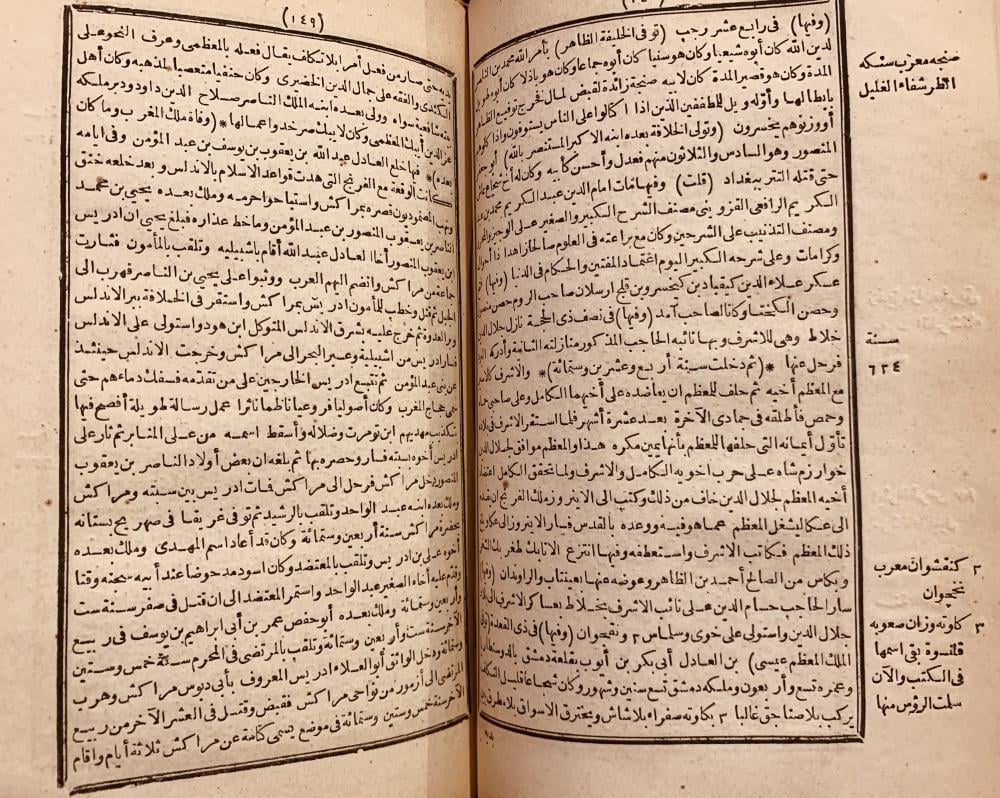 (وفيها) في رابع عشر رجب (توفي الخليفة الظاهر) بأمر الله محمد بن الناصر
لدين الله كان أبوه شيعيا وكان هو سنيا كان أبوه جماعا وكان هو باذلا كان أبوه طويل
المدة وكان هو قصير المدة كان لابيه صنجة زائدة للقبض لمال فخرج توقيع الظاهر
بابطالها وأوله ويل للمطففين الذين اذا اكتالوا على الناس يستوفون واذا كالوهم
أو وزنوهم يخسرون (وتولى الخلافة بعده ابنه الاكبر المستنصر بالله) أبو جعفر
المنصور وهو السادس والثلاثون منهم فعدل وأحسن كأبيه وكان له أخ شجاع
حتى قتله التتر ببغداد (قلت) وفيها مات امام الدين عبد الكريم بن محمد بن عبد
الكريم الرافعي القزويني مصنف الشرح الكبير والصغير على الوجيز والمحرر
ومصنف التذنيب على الشرحين وكان مع براعته في العلوم صالحا زاهدا ذا أحوال
وكرامات وعلى شرحه الكبير اليوم اعتماد المفتين والحكام في الدنيا (وفيها)
عسكر علاء الدين كيقباد بن كيخسرو بن قليج ارسلان صاحب الروم حصن منصور
وحصن الكختا وكانا لصاحب آمد (وفيها) في نصف ذي الحجة نازل جلال الدين
خلاط وهي للاشرف وبها نائبه الحاجب المذكور منازلته الثانية وأدركه البرد
فرحل عنها * (ثم دخلت سنة أربع وعشرين وستمائة) * والاشرف كالاسير
مع المعظم أخيه ثم حلف للمعظم ان يعاضده على أخيهما الكامل وعلى صاحبي حماه
وحمص فأطلقه في جمادى الآخرة بعد عشرة أشهر فلما استقر الاشرف في بلاده
تأول أيمانه التي حلفها للمعظم بأنها يمين مكره هذا والمعظم موافق لجلال الدين
خوارزم شاه على حرب اخويه الكامل والاشرف ولما تحقق الكامل اعتضاد
أخيه المعظم لجلال الدين خاف من ذلك وكتب الى الانبروز ملك الفرنج ان يقدم
الى عكا ليشغل المعظم عما هو فيه ووعده بالقدس فسار الانبروز الى عكا وبلغ
ذلك المعظم فكاتب الاشرف واستعطفه وفيها انتزع الاتابك طغريك الشغر
وبكاس من الصالح أحمد بن الظاهر وعوضه عنها بعينتاب والراوندان (وفيها)
سار الحاجب حسام الدين على نائب الاشرف بخلاط بعساكر الاشرف الى بلاد
جلال الدين واستولى على خوى وسلماس ٢ ونقجوان (وفيها) في ذي القعدة (توفي
الملك المعظم عيسى) بن العادل أبي بكر بن أيوب بقلعة دمشق بالدوسنطاريا
وعمره تسع وأربعون وملكه دمشق تسع سنين وشهور وكان شجاعا قليل التكلف
يركب بلا صناجق غالبا ٣ بكلوته صفراء بلا شاش ويخترق الاسواق بلا مطرق بين
يديه
صنجه معرب سنكه
انظر شفاء الغليل
سنة
٦٢٤
٢ كنقشوان معرب
نخجوان
٣ كلوته وزان صعوبه
قلنسوة بقى اسمها
في الكتب والآن
سلت الرؤس منها
(١٤٩)
يديه حتى صار من فعل أمرا بلا تكلف يقال فعله بالمعظمي وعرف النحو على
الكندي والفقه على جمال الدين الحضيري وكان حنفيا متعصبا لمذهبه وكان أهل
بيته شافعية سواه وولى بعده ابنه الملك الناصر صلاح الدين داود ودبر ملكه
عز الدين أيبك المعظمي وكان لايبك صرخد وأعمالها * (وفاة ملك المغرب وما كان
بعده) * فيها خلع العادل عبد الله بن يعقوب بن يوسف بن عبد المؤمن وفي ايامه
كانت الوقعة مع الفرنج التي هدت قواعد الاسلام بالاندلس وبعد خلعه خنق
ونهب المصموديون قصره بمراكش واستباحوا حرمه وملك بعده يحيى بن محمد
الناصر بن يعقوب المنصور بن عبد المؤمن وما خط عذاره فبلغ يحيى ان ادريس
ابن يعقوب المنصور أخا العادل عبد الله أقام باشبيليه وتلقب بالمأمون فثارت
جماعة من مراكش وانضم اليهم العرب ووثبوا على يحيى بن الناصر فهرب الى
الجبل ثم قتل وخطب للمأمون ادريس بمراكش واستقر في الخلافة ببر الاندلس
وبر العدوة ثم خرج عليه بشرق الاندلس المتوكل ابن هود واستولى على الاندلس
فسار ادريس من اشبيلية وعبر البحر الى مراكش وخرجت الاندلس حينئذ
عن بني عبد المؤمن ثم تتبع ادريس الخارجين على من تقدمه فسفك دماءهم حتى
سمى حجاج المغرب وكان أصوليا فروعيا ناظما ناثرا عمل رسالة طويلة أفصح فيها
بتكذيب مهديهم ابن تومرت وضلاله وأسقط اسمه من على المنابر ثم ثار على
ادريس أخوه بسبته فسار وحصره بها ثم بلغه ان بعض أولاد الناصر بن يعقوب
المنصور دخل مراكش فرحل الى مراكش فمات ادريس بين سبته ومراكش
وملك بعده ابنه عبد الواحد وتلقب بالرشيد ثم توفي غريقا في صهريج بستانه
بحضرة مراكش سنة أربعين وستمائة وكان قد أعاد اسم المهدي وملك بعده
أخوه على بن ادريس وتلقب بالمعتضد وكان اسود مدحوضا عند أبيه سجنه وقتا
وقدم عليه أخاه الصغير عبد الواحد واستمر المعتضد الى ان قتل في صفر سنة ست
وأربعين وستمائة وملك بعده أبو حفص عمر بن أبي ابراهيم بن يوسف في ربيع
الآخر سنة ست وأربعين وستمائة وتلقب بالمرتضى في المحرم سنة خمس وستين
وستمائة ودخل الواثق أبو العلاء ادريس المعروف بأبي دبوس مراكش وهرب
المرتضى الى أزمور من نواحي مراكش فقبض وقتل في العشر الآخر من ربيع
الآخر سنة خمس وستين وستمائة في موضع يسمى كتامة عن مراكش ثلاثة أيام وأقام